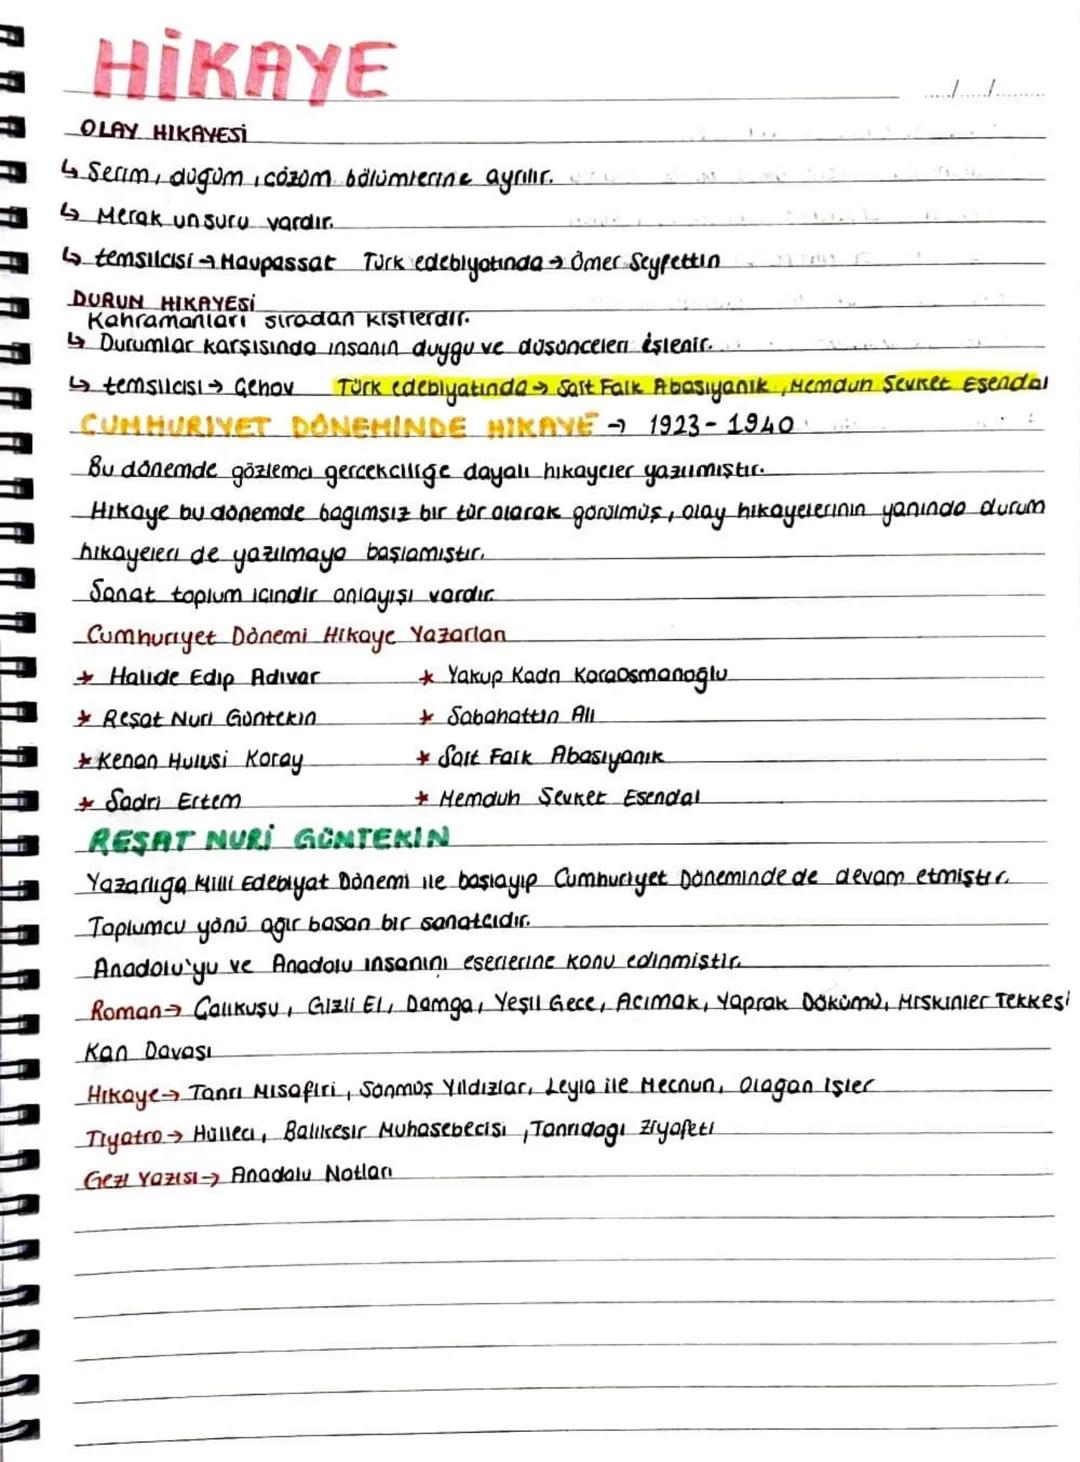 HİKAYE
OLAY HIKAYESİ
↳ Serım, düğüm, cözüm bölümlerıne ayrılır.
↳ Merak unsuru vardır.
↳ temsılcısı → Maupassat Türk edebıyatında → Ömer Seyfettın
DURUN HIKAYESİ
Kahramanları sıradan kışılerdır.
↳ Durumlar karşısında ınsanın duygu ve düsüncelerı işlenir.
↳ temsılcısı → Çehov Türk edebıyatında → Saıt Faık Abasıyanık, Memduh Sevket Esendal
CUMHURIYET DÖNEMINDE HIKAYE → 1923-1940
Bu dönemde gözlemcı gercekcılığe dayalı hıkayeler yazılmıştır.
Hıkaye bu dönemde bagımsız bır tür olarak görülmüş, olay hıkayelerının yanında durum
hıkayelerı de yazılmaya başlamıstır.
Sanat toplum ıcındır anlayışı vardır.
Cumhurıyet Dönemı Hıkaye Yazarları
★ Halıde Edıp Adıvar ★ Yakup Kadrı Karaosmanoğlu
★ Reşat Nurı Güntekın ★ Sabahattın Alı
★ Kenan Hulusi Koray ★ Saıt Faık Abasıyanık
★ Sadrı Ertem ★ Memduh Şevket Esendal
REŞAT NURİ GÜNTEKIN
Yazarlığa Mıllı Edebıyat Dönemı ıle başlayıp Cumhurıyet Dönemınde de devam etmıştır.
Toplumcu yönü ağır basan bır sanatcıdır.
Anadolu'yu ve Anadolu ınsanını eserlerıne konu edınmıstır.
Roman → Çalıkuşu, Gızlı El, Damga, Yeşıl Gece, Acımak, Yaprak Dökümü, Mıskınler Tekkesı
Kan Davası
Hıkaye → Tanrı Mısafiri, Sönmüş Yıldızlar, Leyla ile Mecnun, Olagan Işler
Tıyatro → Hülleci, Balıkesır Muhasebecısı, Tanrıdagı Zıyafetı
Gezı Yazısı → Anadolu Notları